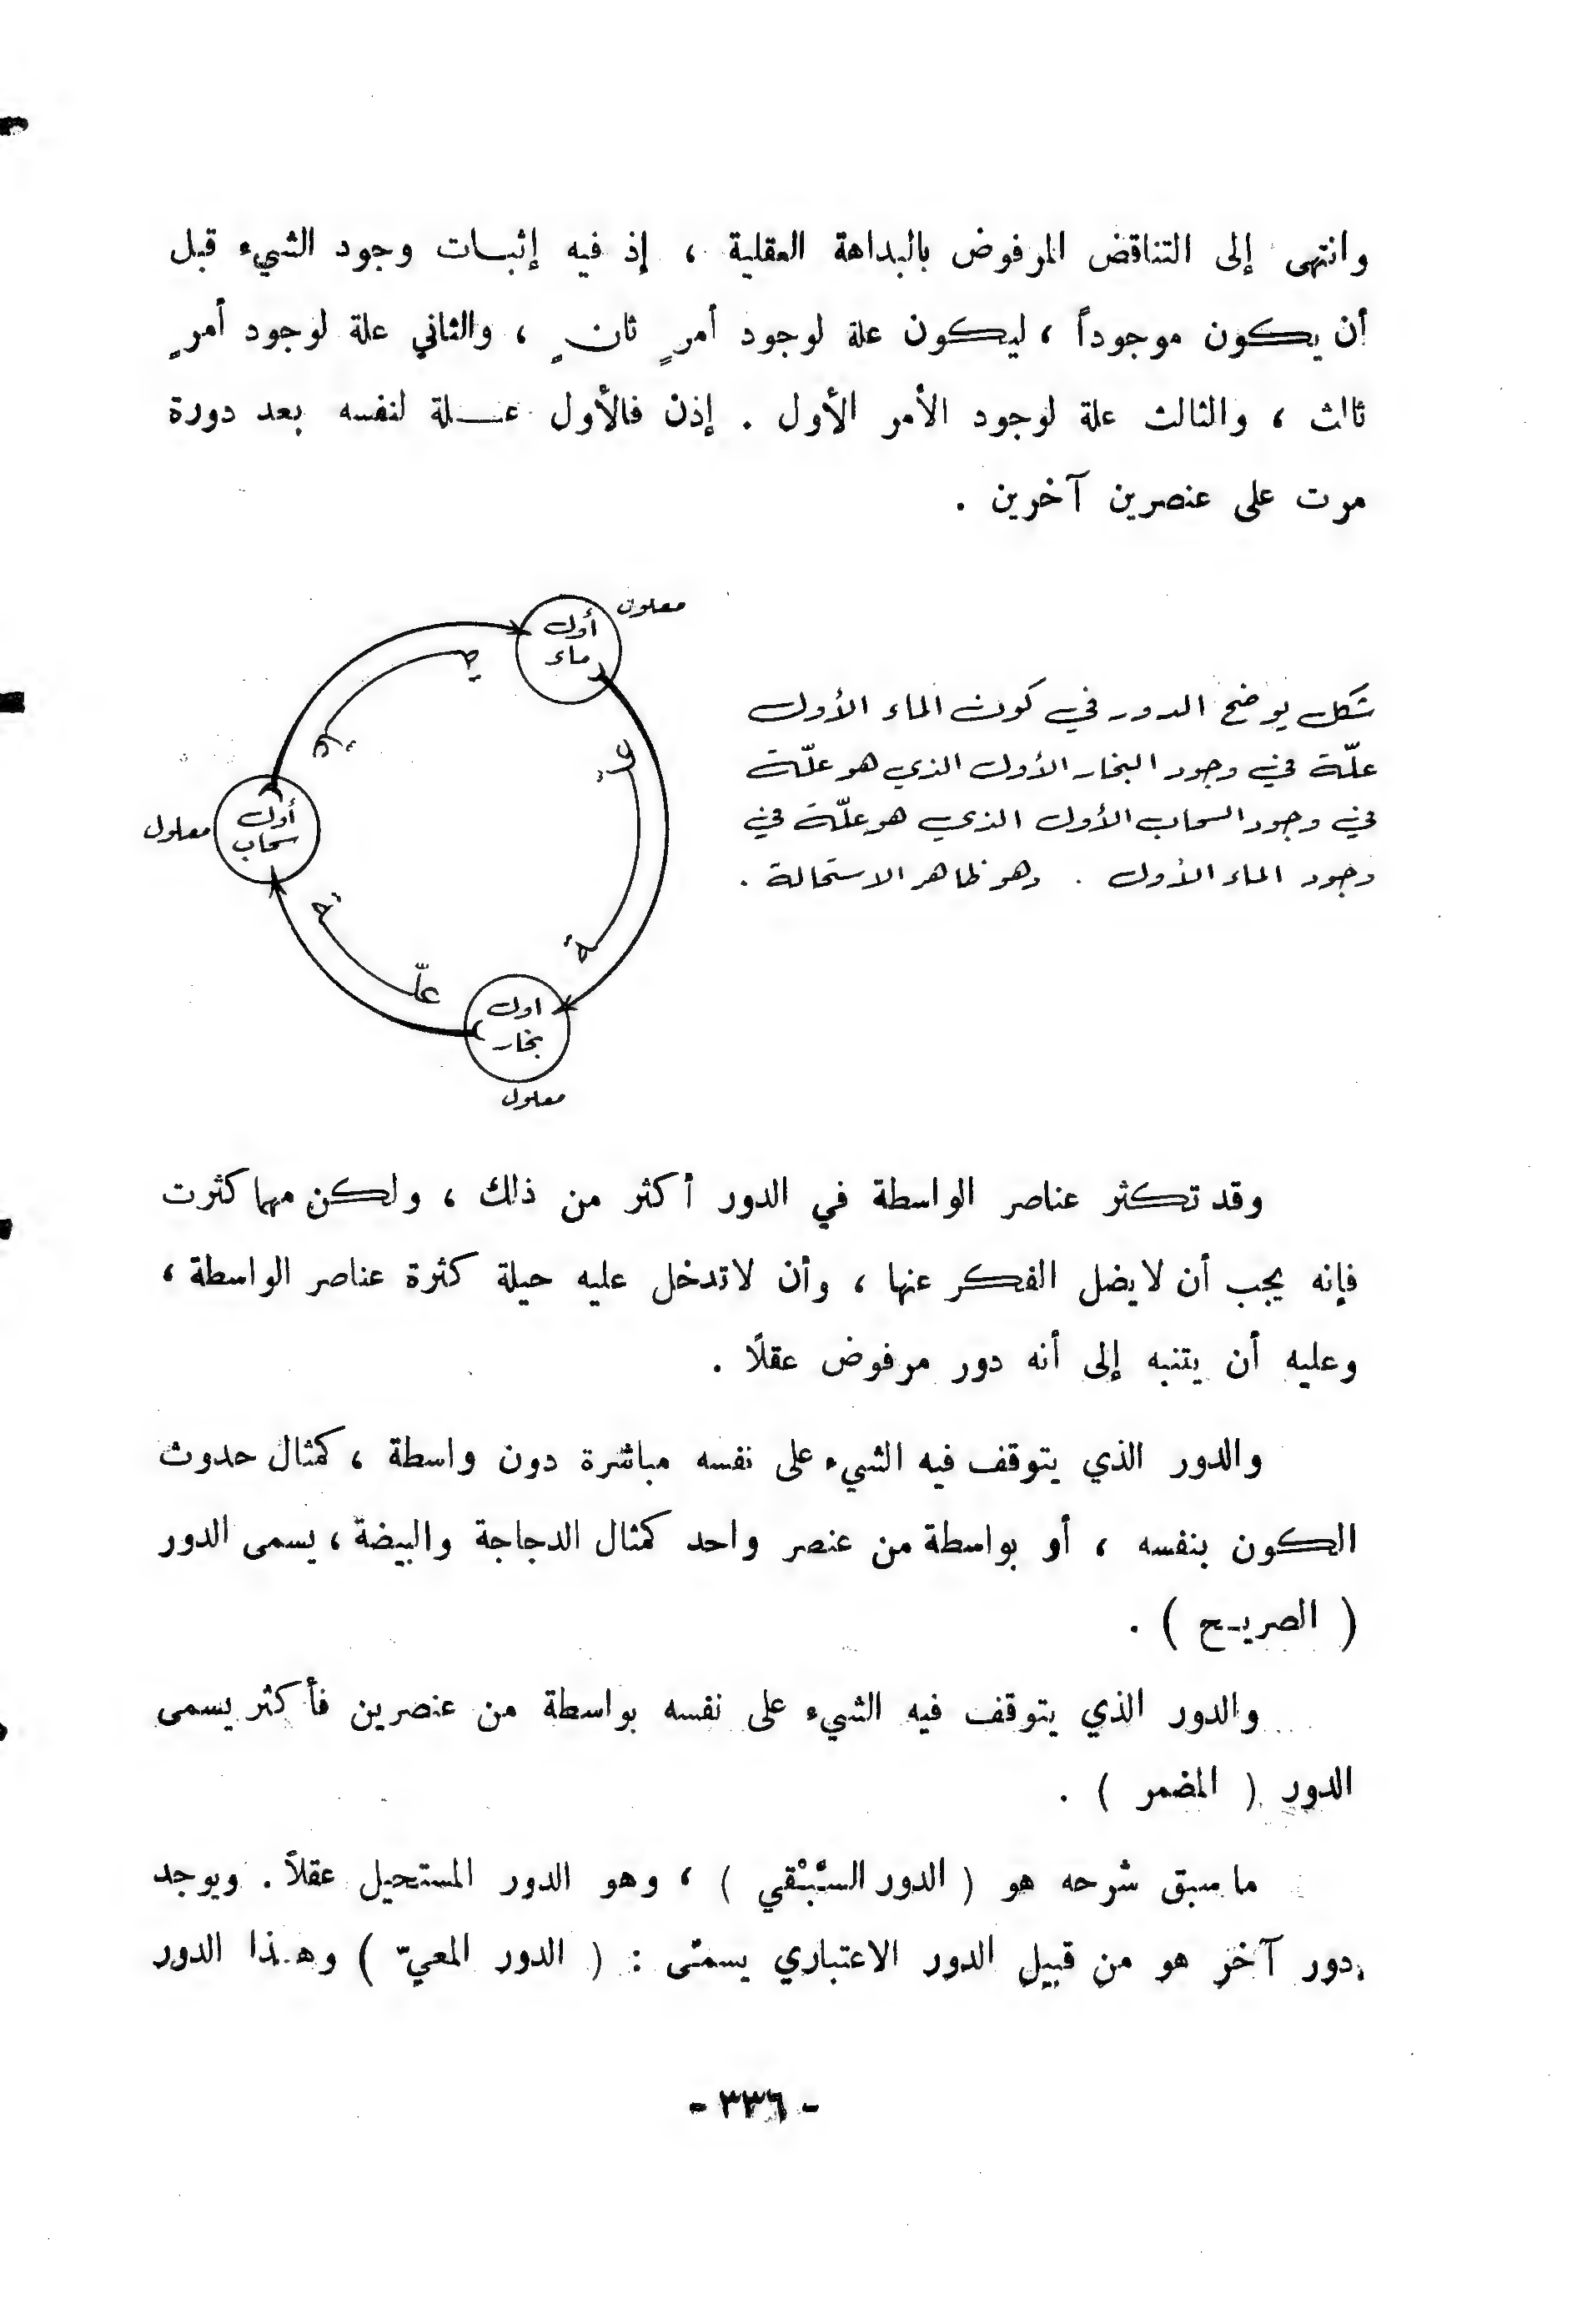 وانتهى إلى التناقض المرفوض بالبداهة العقلية ، إذ فيه إثبـات وجود الشيء قبل
أن يكون موجوداً ، ليكون علة لوجود أمرٍ ثانٍ ، والثاني علة لوجود أمرٍ
ثالث ، والثالث علة لوجود الأمر الأول . إذن فالأول عـــلة لنفسه بعد دورة
مرت على عنصرين آخرين .
معلول
أول
ماء
علّة
علّة
شكل يوضح الدور في كون الماء الأول
علّة في وجود البخار الأول الذي هو علّة
في وجود السحاب الأول الذي هو علّة في
وجود الماء الأول . وهو ظاهر الاستحالة .
أول
سحاب
معلول
علّة
اول
بخار
معلول
وقد تكثر عناصر الواسطة في الدور أكثر من ذلك ، ولكن مهما كثرت
فإنه يجب أن لايضل الفكر عنها ، وأن لاتدخل عليه حيلة كثرة عناصر الواسطة ،
وعليه أن يتنبه إلى أنه دور مرفوض عقلاً .
والدور الذي يتوقف فيه الشيء على نفسه مباشرة دون واسطة ، كمثال حدوث
الكون بنفسه ، أو بواسطة من عنصر واحد كمثال الدجاجة والبيضة ، يسمى الدور
( الصريـح ) .
والدور الذي يتوقف فيه الشيء على نفسه بواسطة من عنصرين فأكثر يسمى
الدور ( المضمر ) .
ماسبق شرحه هو ( الدور السَّبْقي ) ، وهو الدور المستحيل عقلاً . ويوجد
دور آخر هو من قبيل الدور الاعتباري يسمّى : ( الدور المعيّ ) وهـذا الدور
- ٣٣٦ -